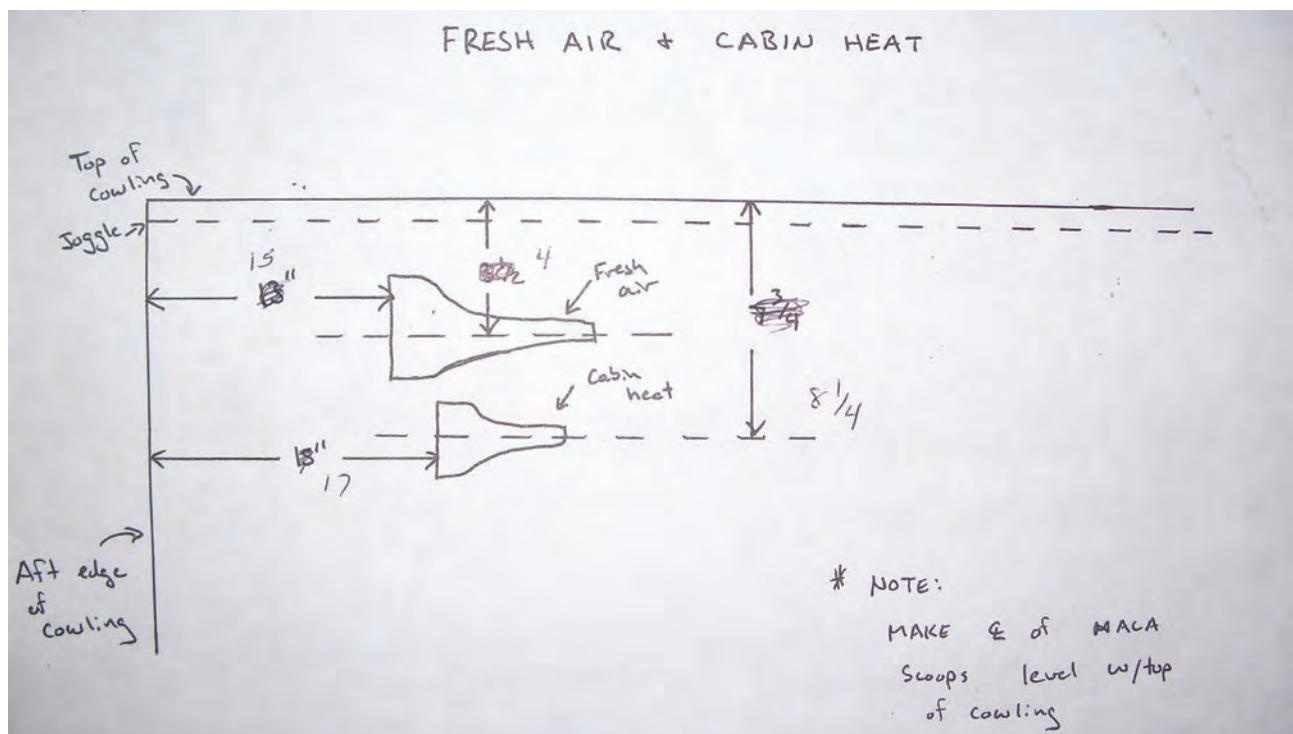 FRESH AIR & CABIN HEAT
Top of
cowling
Joggle
15
"
4
Fresh
air
Cabin
heat
8 1/4
18"
17
Aft edge
of
cowling
* NOTE:
MAKE ℄ of NACA
Scoops level w/top
of cowling